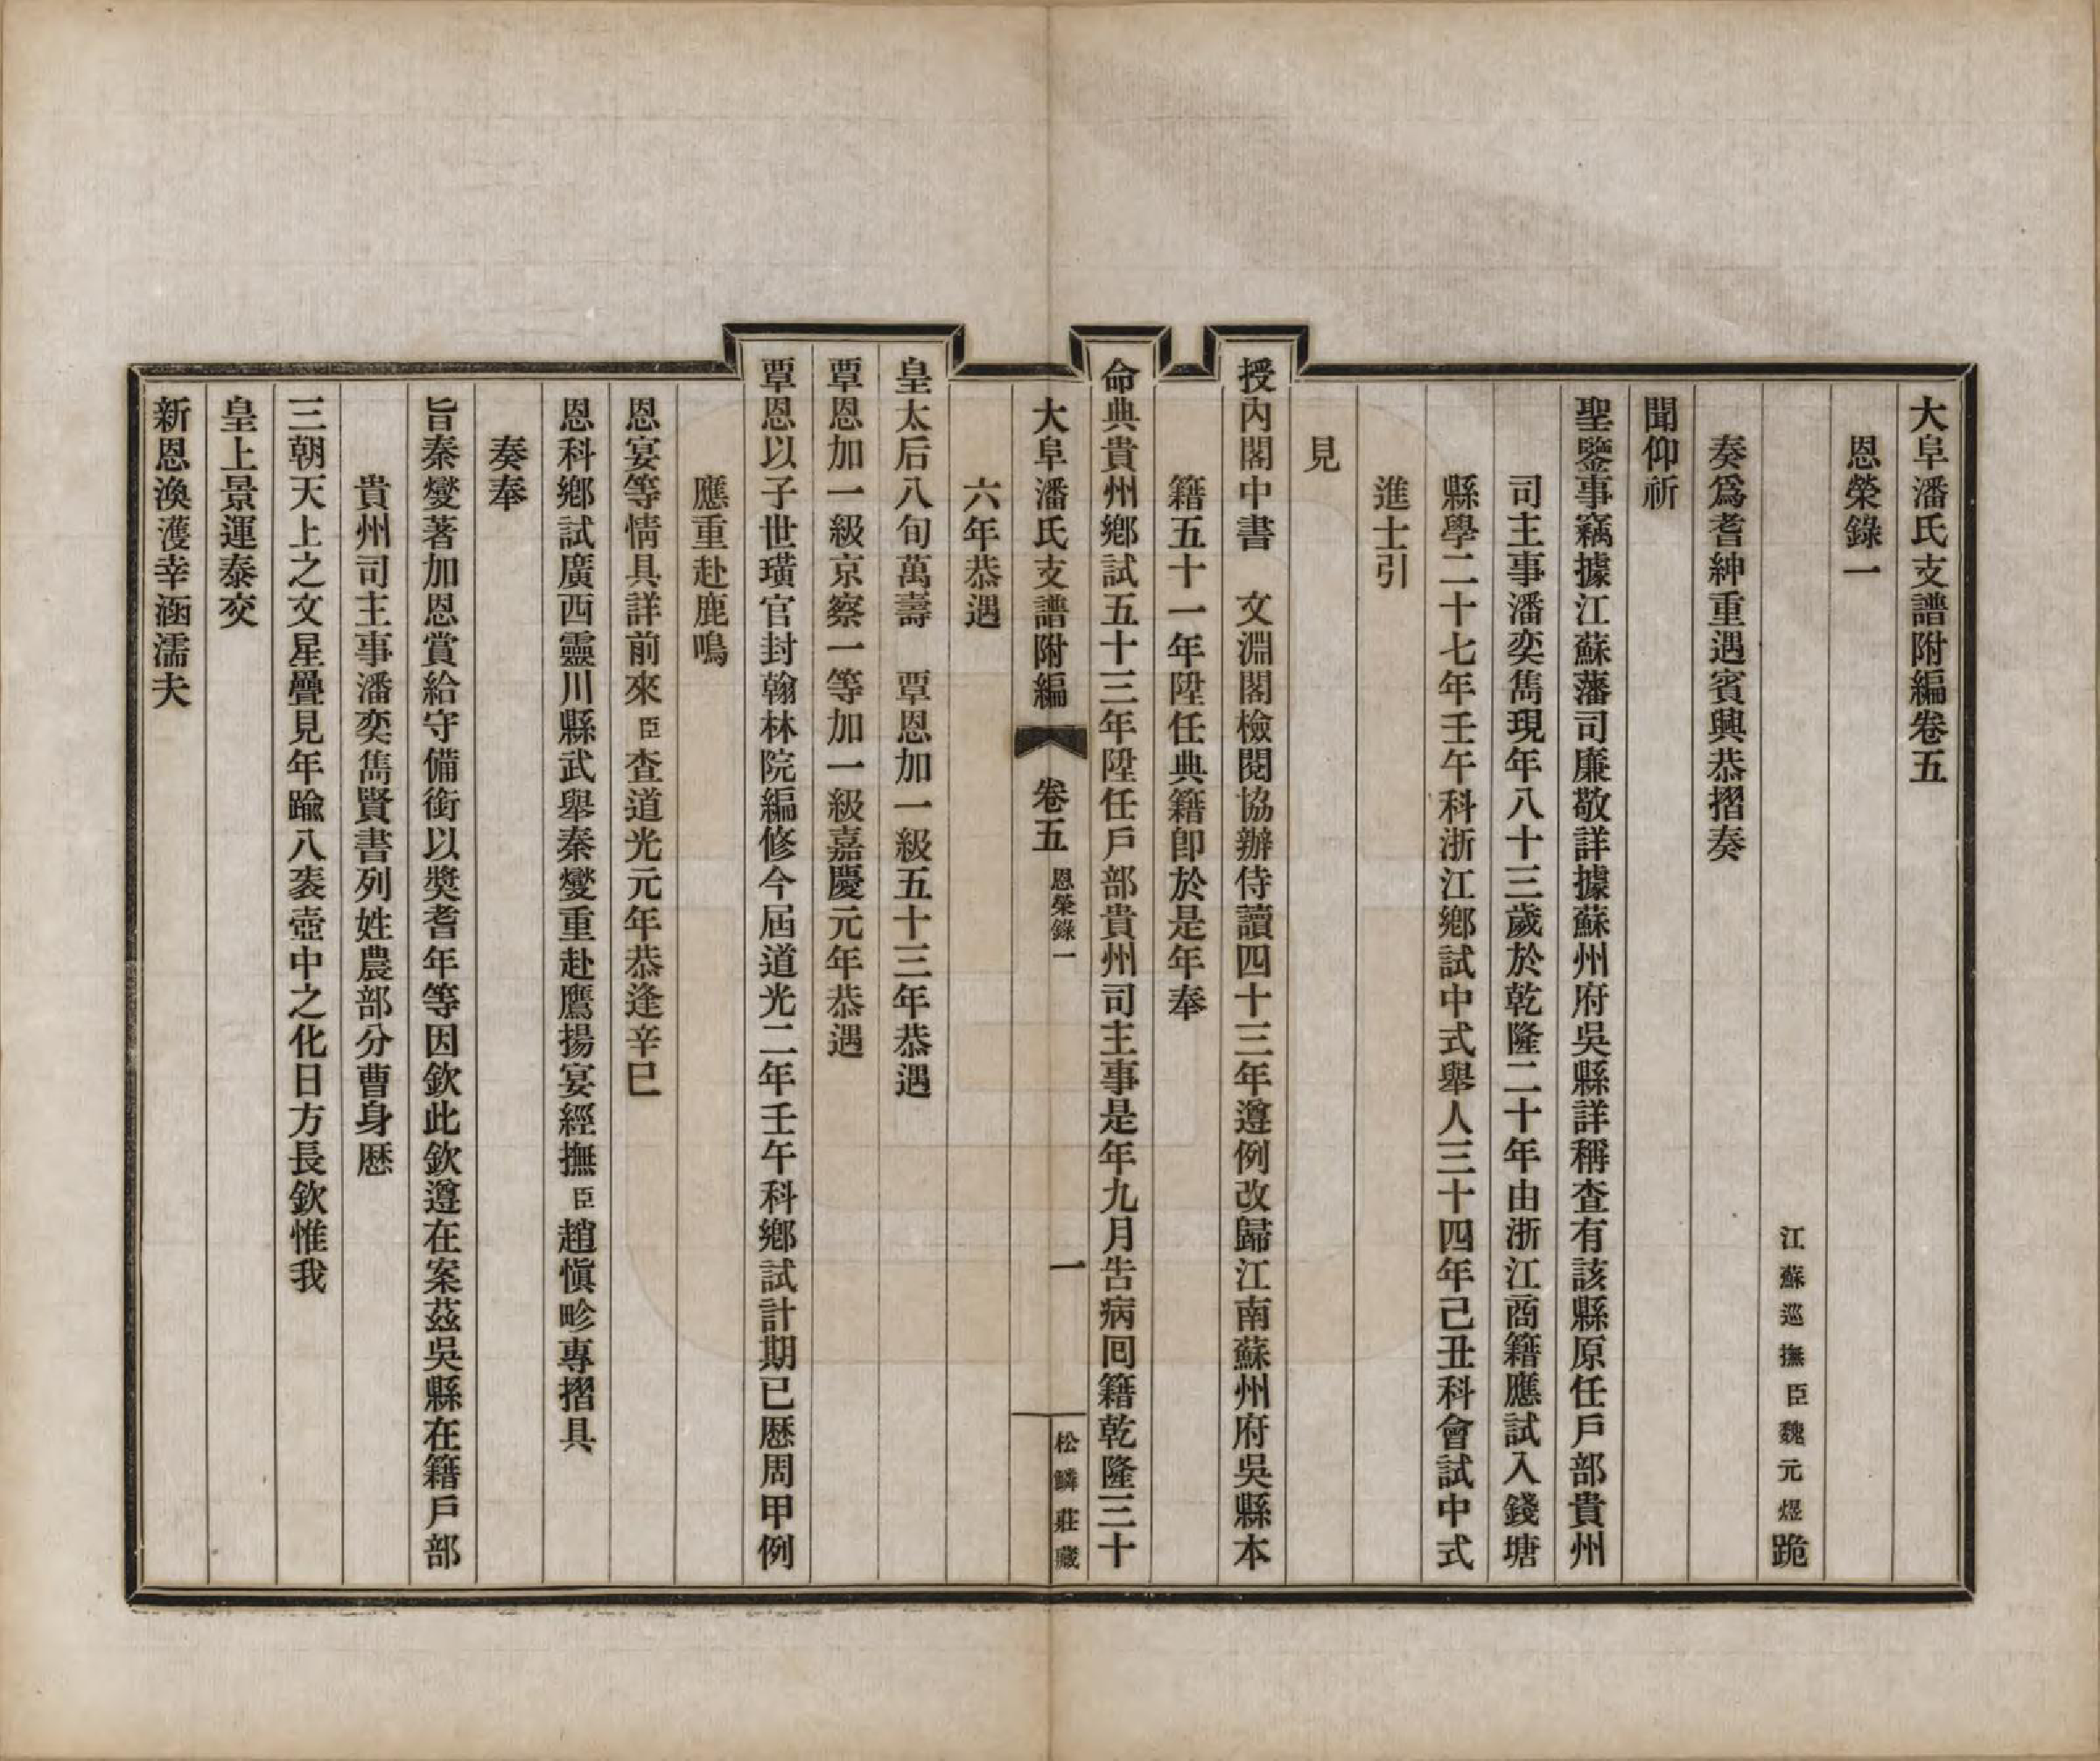 大阜潘氏支譜附編卷五
恩榮錄一
江蘇巡撫臣魏元煜跪
奏爲耆紳重遇賓興恭摺奏
聞仰祈
聖鑒事竊據江蘇藩司廉敬詳據蘇州府吳縣詳稱查有該縣原任戶部貴州
司主事潘奕雋現年八十三歲於乾隆二十年由浙江商籍應試入錢塘
縣學二十七年壬午科浙江鄉試中式舉人三十四年己丑科會試中式
進士引
見
授內閣中書　文淵閣檢閱協辦侍讀四十三年遵例改歸江南蘇州府吳縣本
籍五十一年陞任典籍卽於是年奉
命典貴州鄉試五十三年陞任戶部貴州司主事是年九月告病回籍乾隆三十
大阜潘氏支譜附編　卷五　恩榮錄一　一　松鱗莊藏
六年恭遇
皇太后八旬萬壽　覃恩加一級五十三年恭遇
覃恩加一級京察一等加一級嘉慶元年恭遇
覃恩以子世璜官封翰林院編修今屆道光二年壬午科鄉試計期已歷周甲例
應重赴鹿鳴
恩宴等情具詳前來臣查道光元年恭逢辛巳
恩科鄉試廣西靈川縣武舉秦燮重赴鷹揚宴經撫臣趙愼畛專摺具
奏奉
旨秦燮著加恩賞給守備銜以獎耆年等因欽此欽遵在案茲吳縣在籍戶部
貴州司主事潘奕雋賢書列姓農部分曹身歷
三朝天上之文星疊見年踰八袠壺中之化日方長欽惟我
皇上景運泰交
新恩渙濩幸涵濡夫